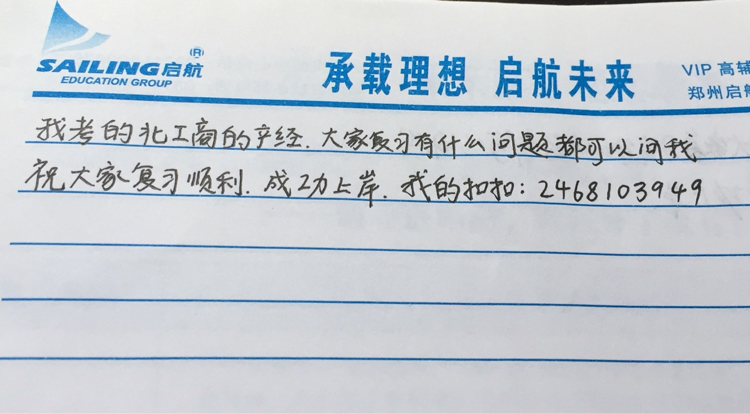 SAILING启航®
EDUCATION GROUP
承载理想 启航未来
VIP 高辅
郑州启航
我考的北工商的产经.大家复习有什么问题都可以问我
祝大家复习顺利.成功上岸.我的扣扣:2468103949